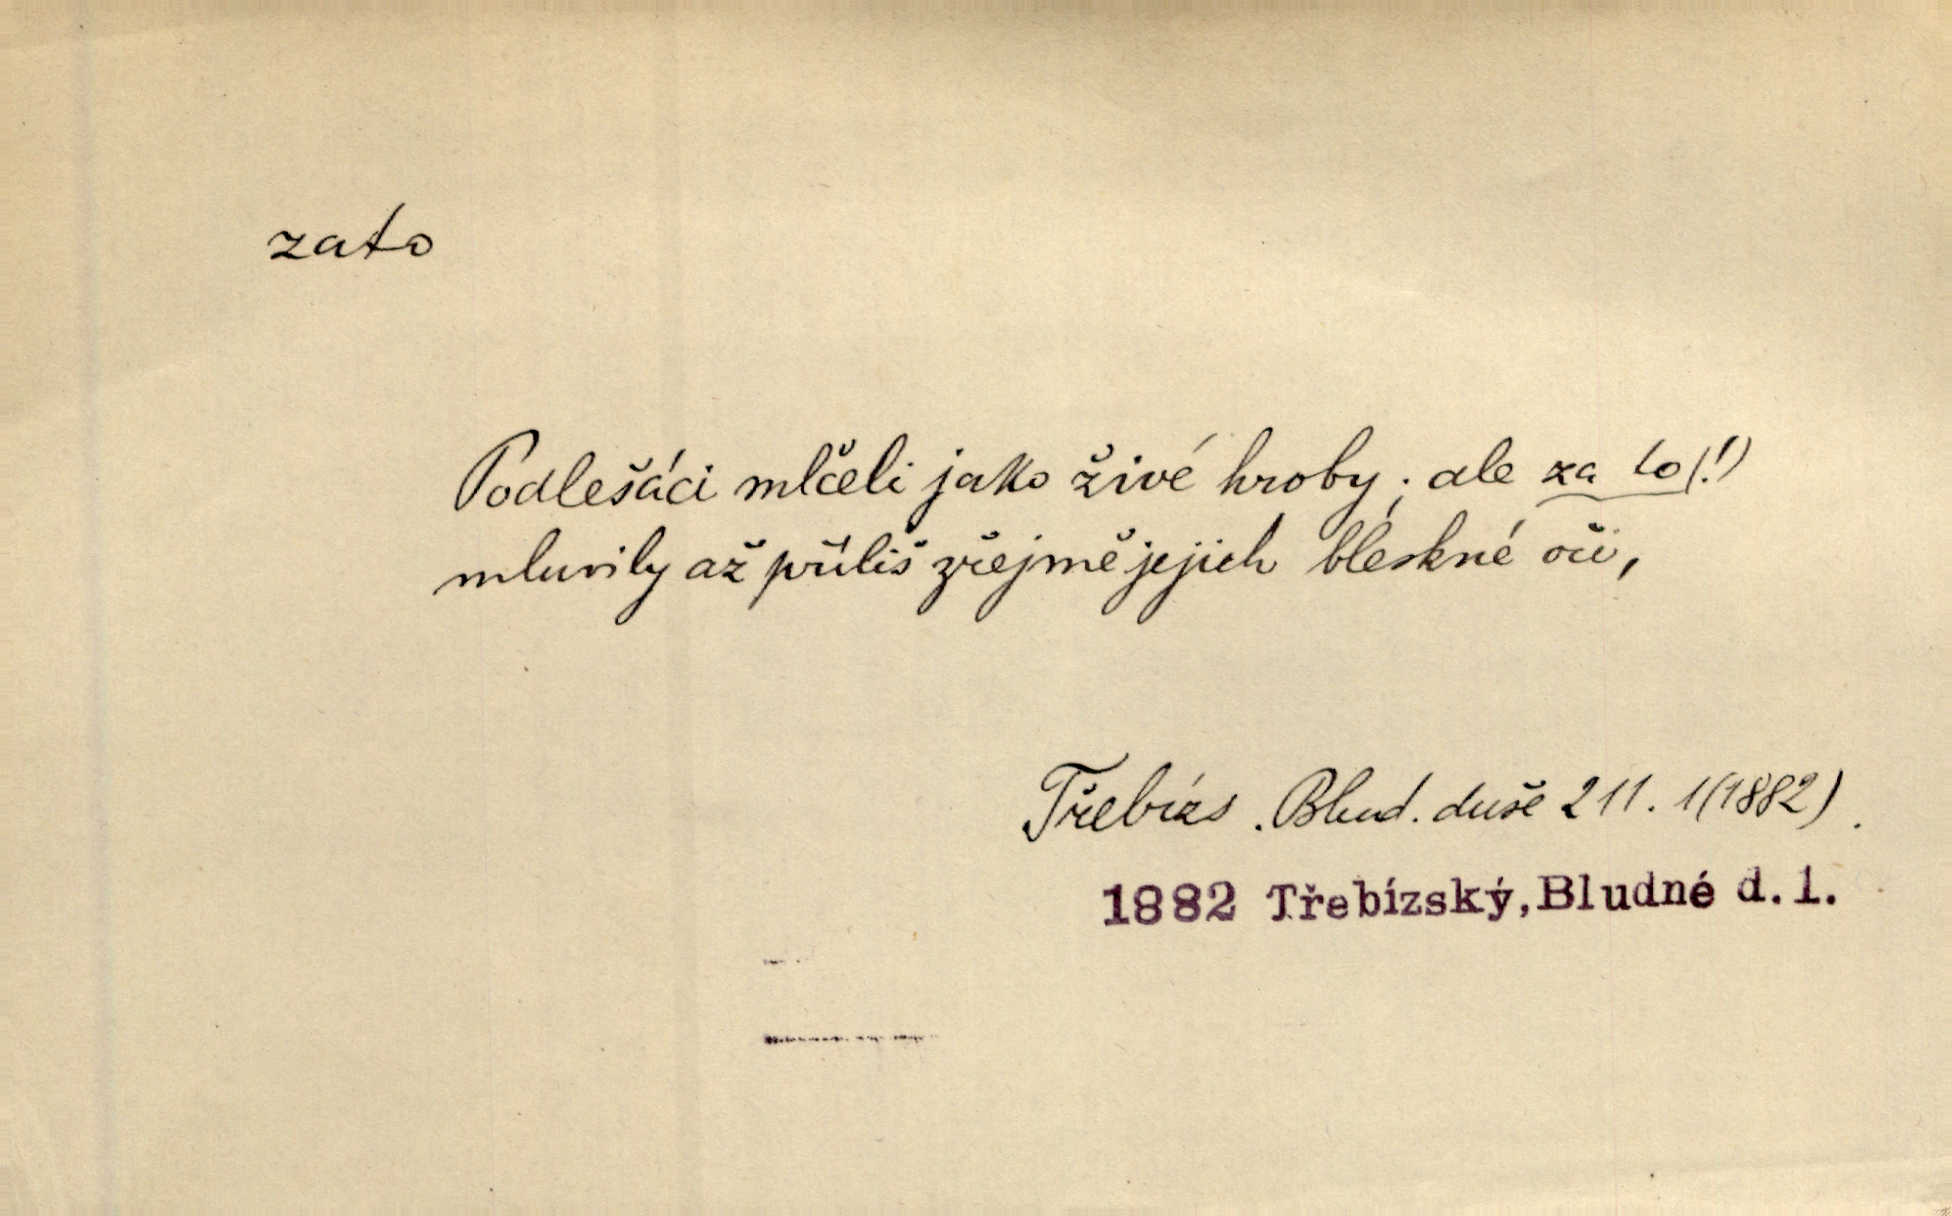 zato
Podlešáci mlčeli jako živé hroby; ale za to (!)
mluvily až příliš zřejmě jejich bleskné oči,
Třebízs. Blud. duše 211. 1(1882).
1882 Třebízský, Bludné d.1.